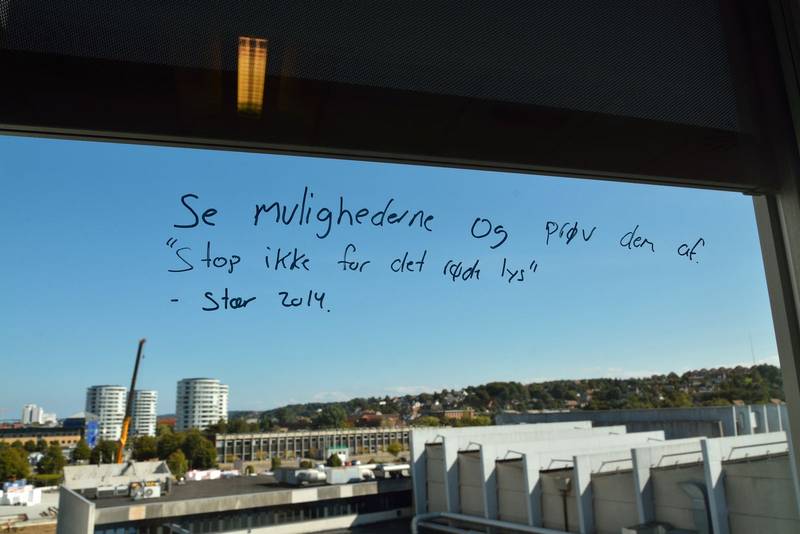 Se mulighederne og prøv dem af.
"Stop ikke for det røde lys"
- Stær 2014.